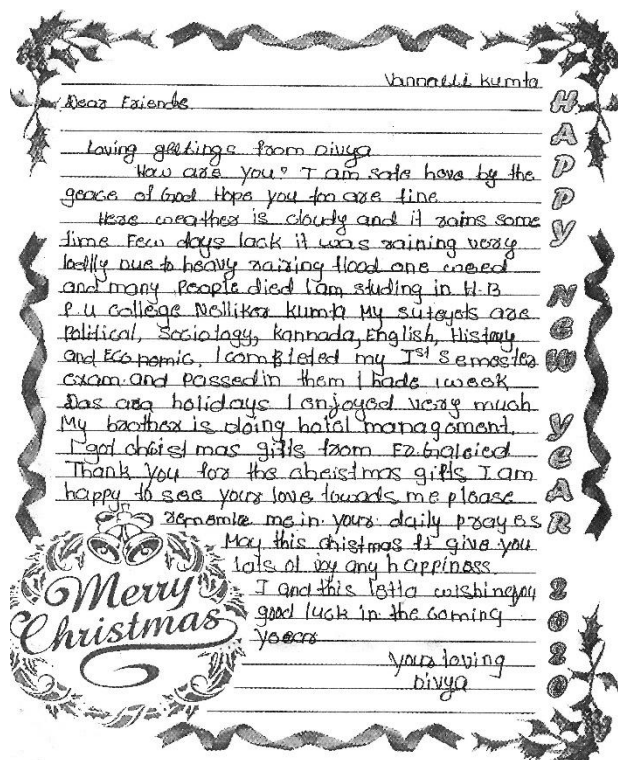 Vannalli Kumta
Dear Friends
Loving geetings from Divya
How are you? I am safe have by the
geace of God Hope you too are fine
Here weather is cloudy and it rains some
time Few days lack it was raining very
badlly Due to heavy rairing flood one
and many People died I am studing in H.B
P.U college Nelliker Kumta My are
Political, Sociology, Kannada, English, History
and Economic, I completed my Ist Semester
exam and Passed in them I hade 1 week
Das ara holidays I enjoyed very much
My brother is doing hotel managoment.
I got christmas gifts from Fr.
Thank you for the cheistmas gifts I am
happy to see your love towads me please
me in your daily prayes
May this chistmas It give you
lots of joy any happiness.
I and this letta wishing you
good luck in the coming
year
your loving
Divya
HAPPY NEW YEAR 2020
Merry
Christmas